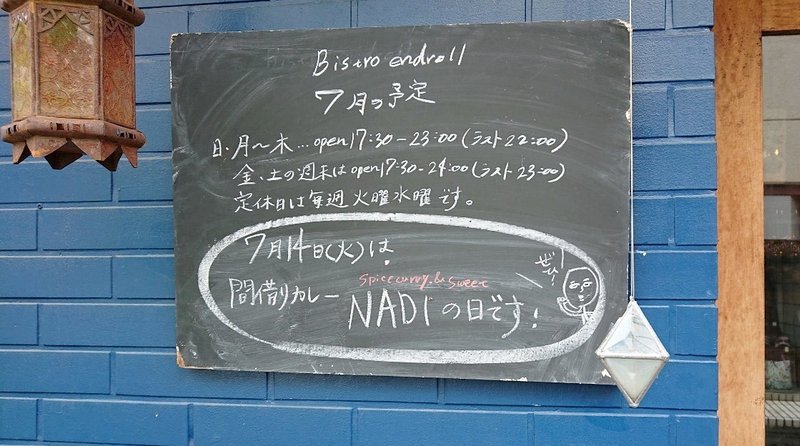 Bistro endroll
7月の予定
日・月〜木...open17:30-23:00(ラスト22:00)
金、土の週末はopen17:30-24:00(ラスト23:00)
定休日は毎週火曜水曜です。
7月14日(火)は!
ぜひ!
spicecurry&sweet
間借りカレー NADiの日です!